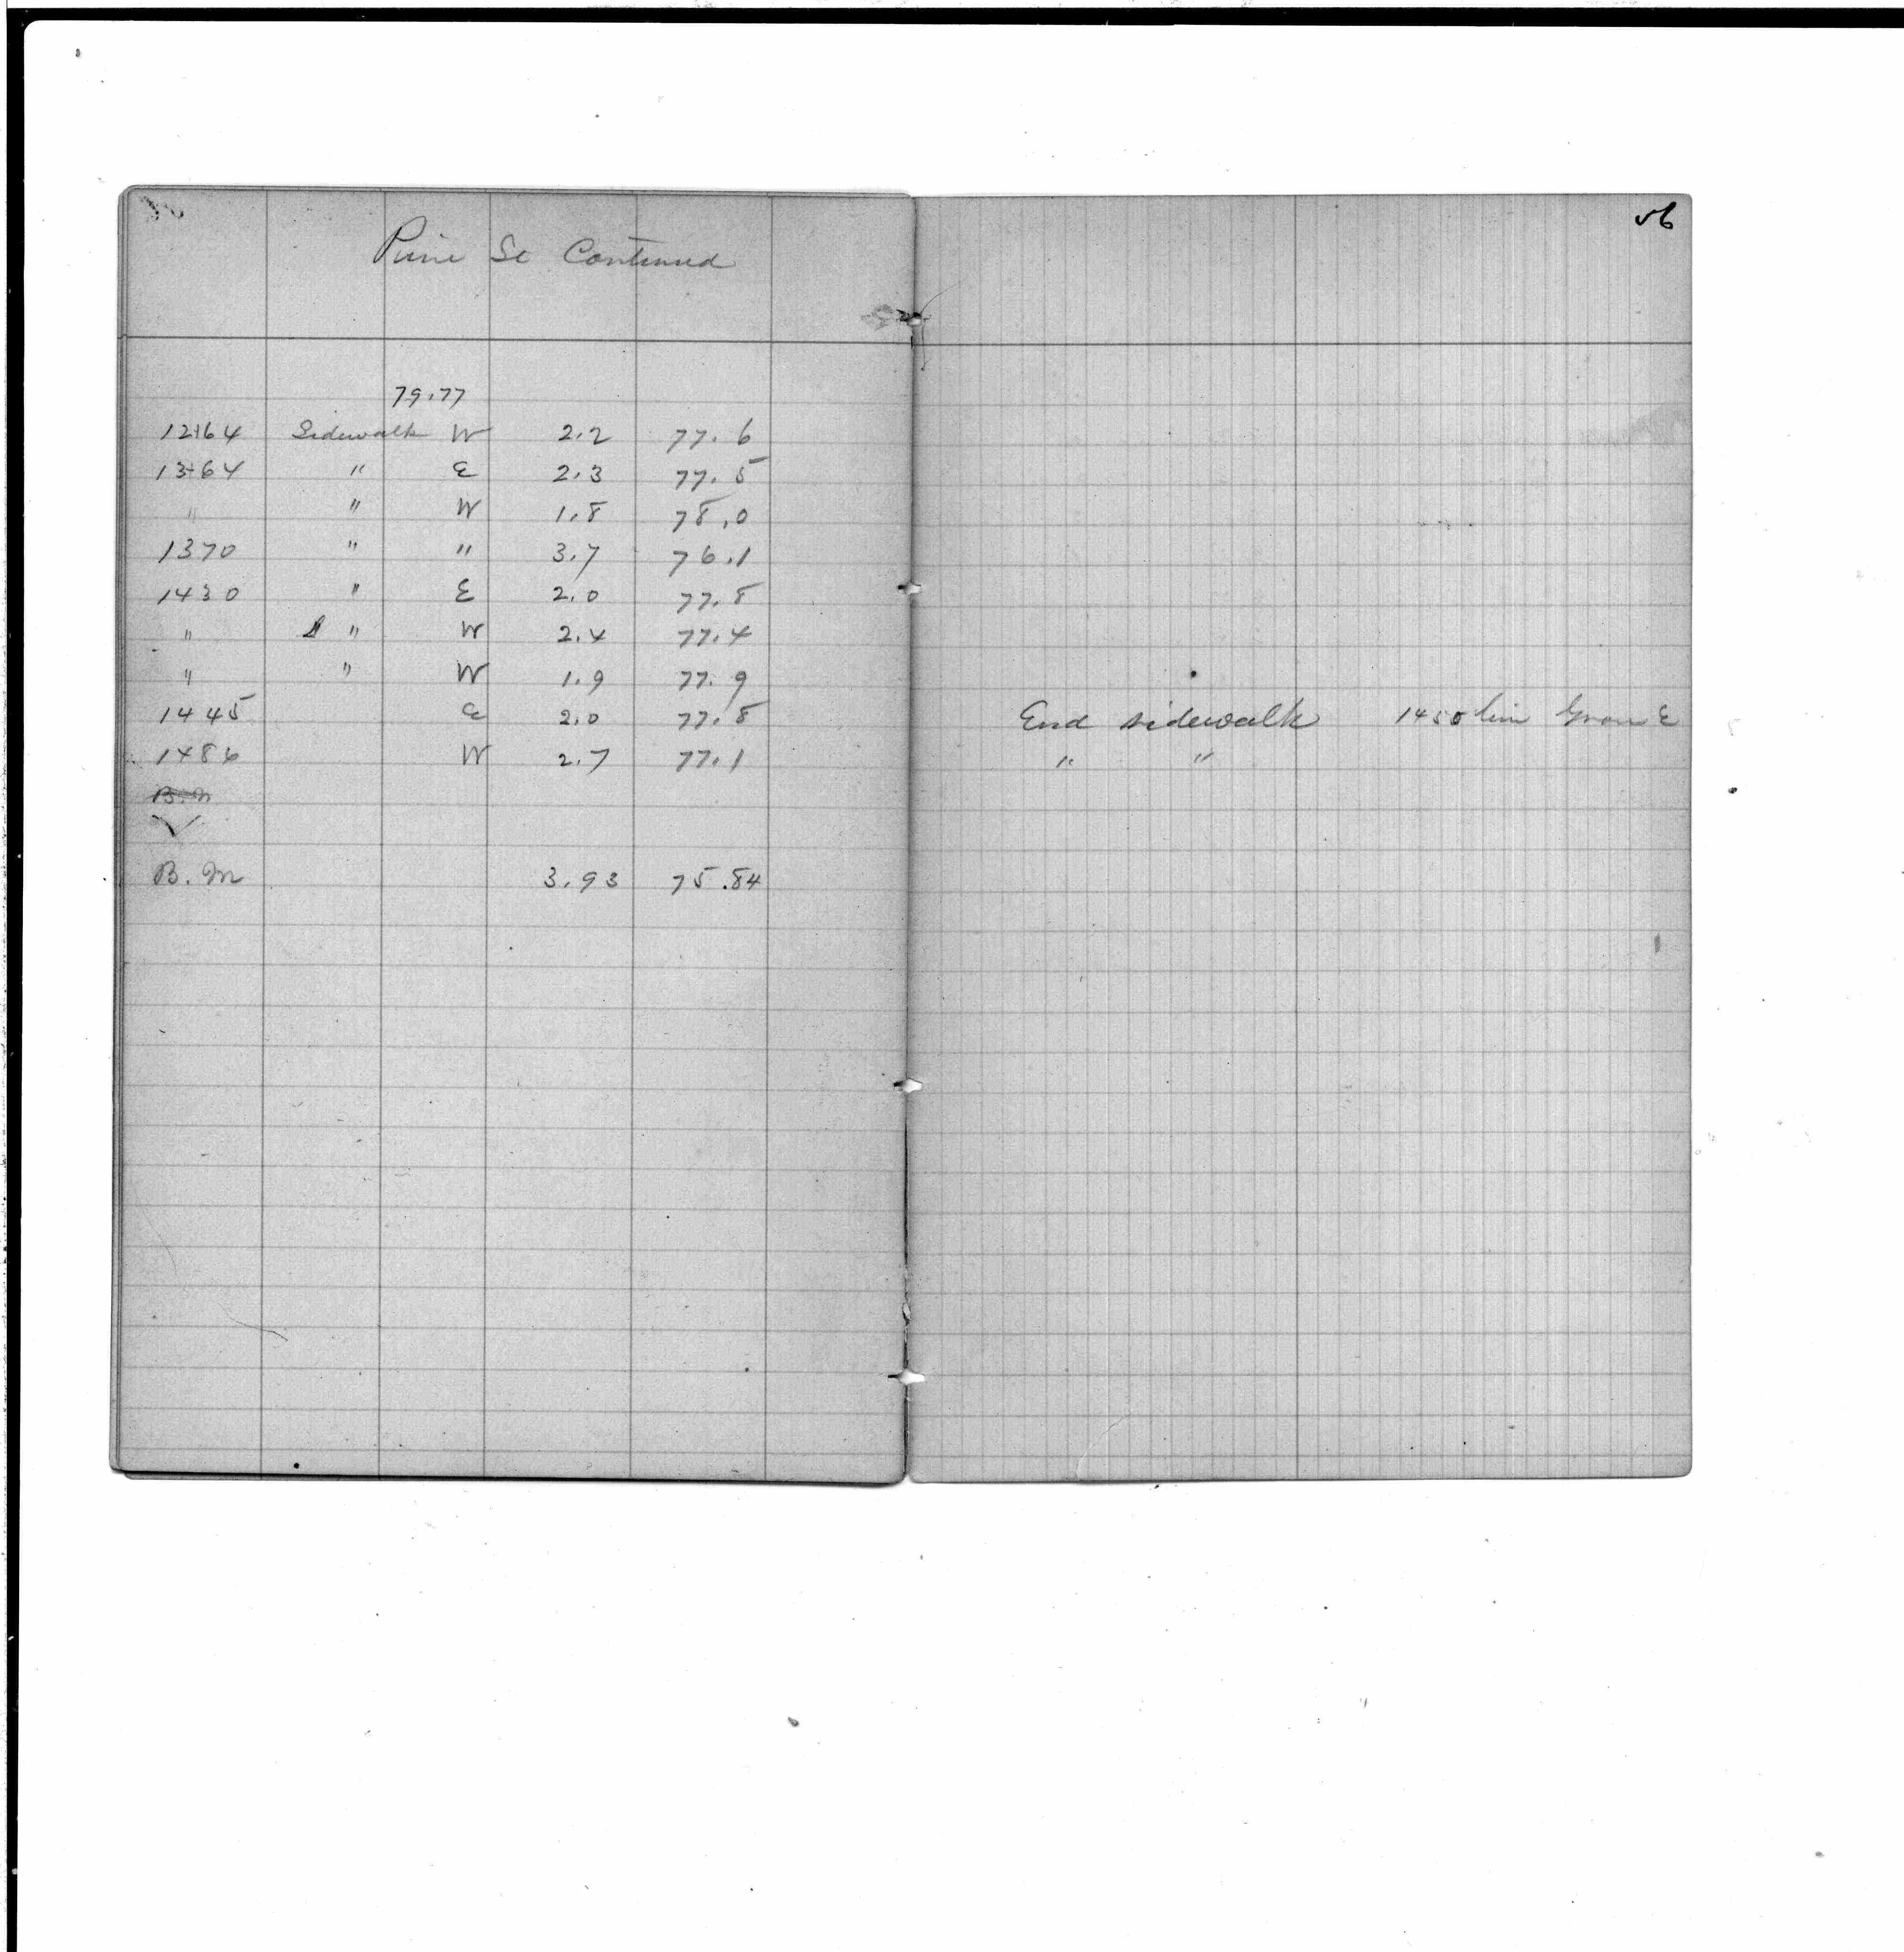 Pine St Continued
79.77
12+64 Sidewalk W 2.2 77.6
13+64 " E 2.3 77.5
" " W 1.8 78.0
1370 " " 3.7 76.1
1430 " E 2.0 77.8
" " W 2.4 77.4
" " W 1.9 77.9
1445 E 2.0 77.8
1486 W 2.7 77.1
B.M
B.M 3.93 75.84
56
End sidewalk 1450 line E
" "